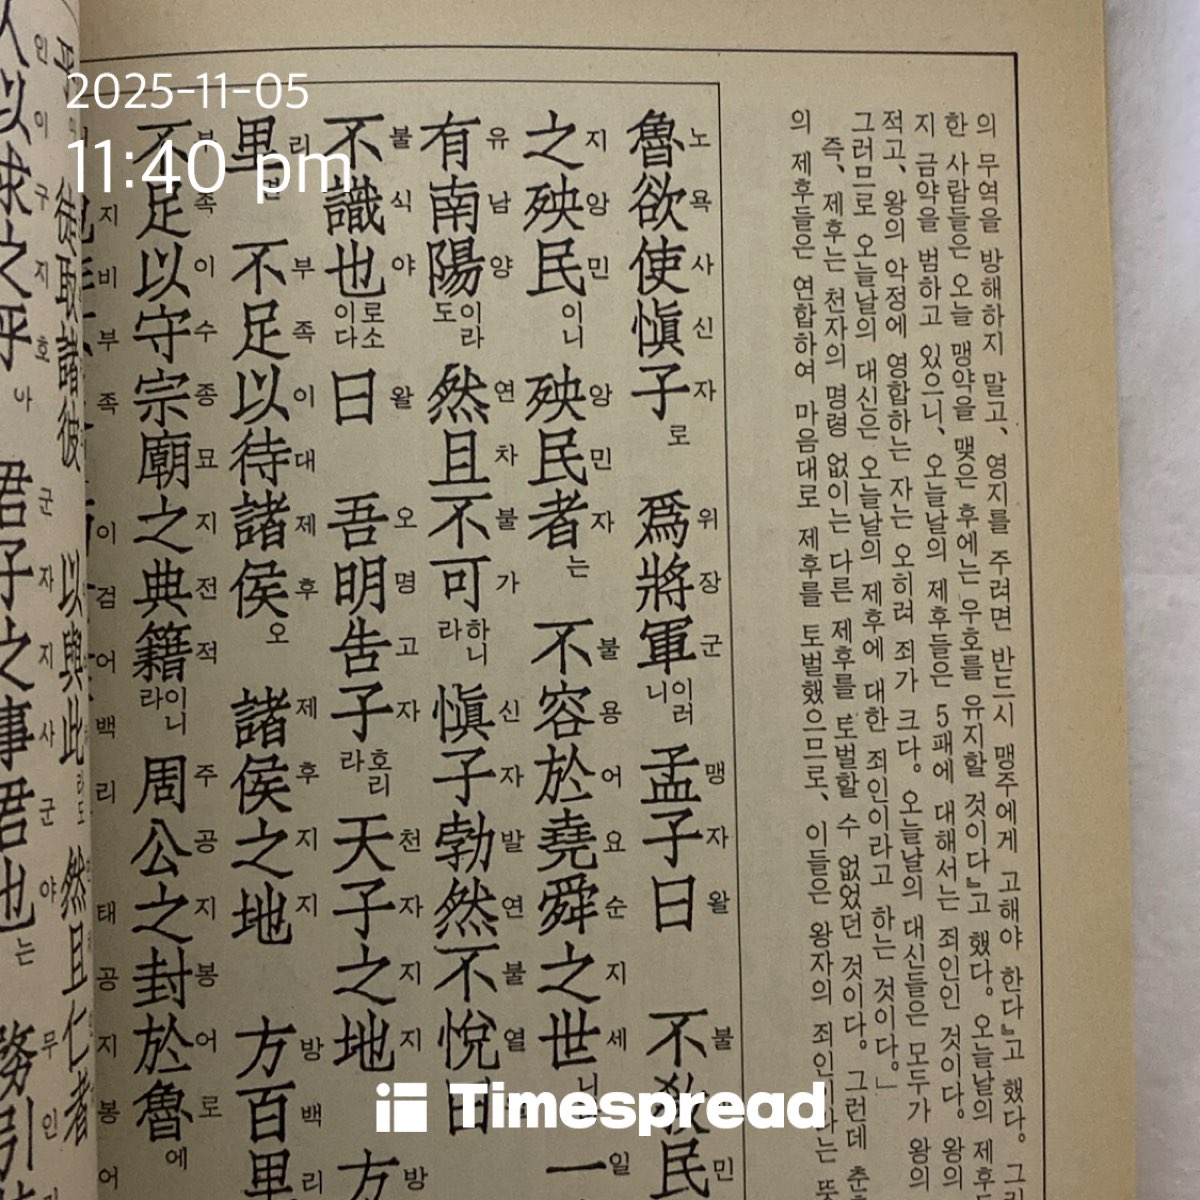 2025-11-05
11:40 pm
의 무역을 방해하지 말고, 영지를 주려면 반드시 맹주에게 고해야 한다』고 했다.
한 사람들은 오늘 맹약을 맺은 후에는 우호를 유지할 것이다』고 했다. 오늘날의 제후
지 금약을 범하고 있으니, 오늘날의 제후들은 5패에 대해서는 죄인인 것이다. 왕의
적고, 왕의 악정에 영합하는 자는 오히려 죄가 크다. 오늘날의 대신들은 모두가 왕의
그러므로 오늘날의 대신은 오늘날의 제후에 대한 죄인이라고 하는 것이다.」
즉, 제후는 천자의 명령 없이는 다른 제후를 토벌할 수 없었던 것이다. 그런데 춘
의 제후들은 연합하여 마음대로 제후를 토벌했으므로, 이들은 왕자의 죄인이라는 뜻
노욕사신자 위장군 맹자왈 불 민
魯欲使愼子로 爲將軍이러니 孟子曰 不敎民
지앙민 앙민자 불용어요순지세 일
之殃民이니 殃民者는 不容於堯舜之世니라 一
유남양 연차불가 신자발연불열
有南陽이라도 然且不可하니라 愼子勃然不悅曰
불식야 왈 오명고자 천자지지 방
不識也로소이다 曰 吾明告子호리라 天子之地 方
리 부족이대제후 제후지지 방백리
里 不足以待諸侯오 諸侯之地 方百里
부족이수종묘지전적 주공지봉어로
不足以守宗廟之典籍이니라 周公之封於魯에
지비부족 이검어백리 태공지봉어
徒取諸彼 以與此라도 然且仁者
인이구지호 군자지사군야 무인
人以求之乎아 君子之事君也는 務引
Timespread